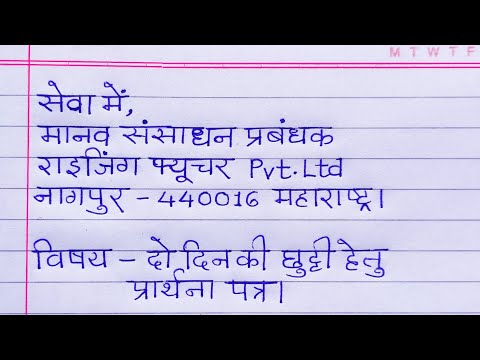 M T W T F
सेवा में,
मानव संसाधन प्रबंधक
राइजिंग फ्यूचर Pvt.Ltd
नागपुर - 440016 महाराष्ट्र।
विषय - दो दिन की छुट्टी हेतु
प्रार्थना पत्र।